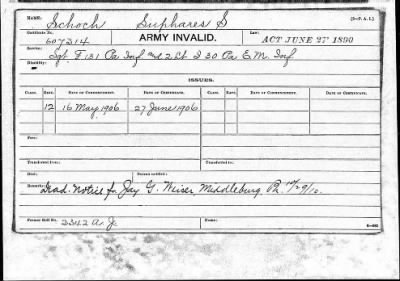 NAME: (3-P. A. I.)
Schoch Suphares S
Certificate No. ARMY INVALID. Law:
607214 ACT JUNE 27 1890
Service:
Sgt. F 131 Pa Inf and 2 Lt I 30 Pa E.M. Inf
Disability:
ISSUES.
CLASS. RATE. DATE OF COMMENCEMENT. DATE OF CERTIFICATE. CLASS. RATE. DATE OF COMMENCEMENT. DATE OF CERTIFICATE.
12 16 May 1906 27 June 1906
Fees:
Transferred from: Transferred to:
Died: Person notified:
Remarks: Notice Jay G. Weiser Middleburg Pa. 10/29/10.
Former Roll No. Home:
2342 A